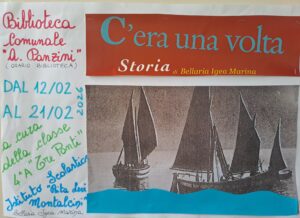 Biblioteca
Comunale
"A. Panzini"
(ORARIO BIBLIOTECA)
DAL 12/02
AL 21/02
2026
a cura
della classe
4ª A "Tre Ponti"
Istituto Scolastico
"Rita Levi
Montalcini"
Bellaria Igea Marina
C'era una volta
Storia di Bellaria Igea Marina